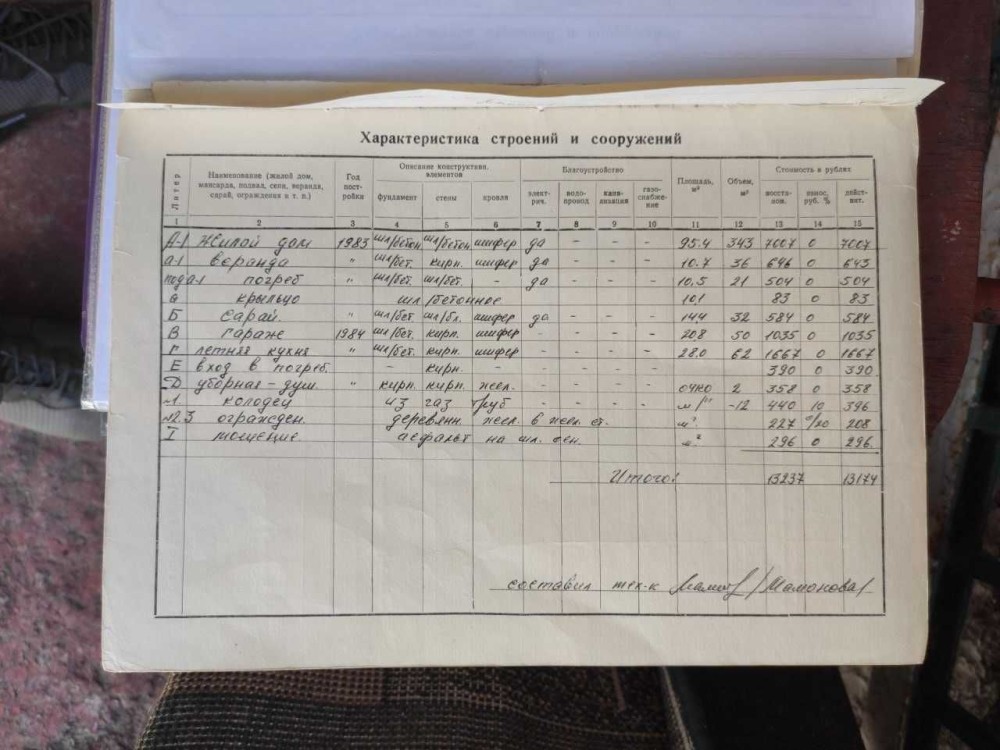 Характеристика строений и сооружений
Литер Наименование (жилой дом, мансарда, подвал, сени, веранда, сарай, ограждения и т. п.) Год постройки Описание конструктивн. элементов Благоустройство Площадь, м² Объем, м³ Стоимость в рублях
фундамент стены кровля электрич. водопровод канализация газоснабжение восстаном. износ, руб. % действит.
1 2 3 4 5 6 7 8 9 10 11 12 13 14 15
А-1 жилой дом 1983 шл/бетон шл/бетон шифер да - - - 95.4 343 7007 0 7007
а1 веранда " шл/бет. кирп. шифер да - - - 10.7 36 646 0 645
под а1 погреб " шл/бет. шл/бет. - да - - - 10,5 21 504 0 504
а крыльцо шл/бетонное 10,1 83 0 83
Б сарай. " шл/бет шл/бл. шифер да - - - 14.4 32 584 0 584
В гараж 1984 шл/бет кирп. шифер - - - - 20.8 50 1035 0 1035
Г летняя кухня " шл/бет. кирп. шифер - - - - 28.0 62 1667 0 1667
Е вход в погреб. - кирп. - - - - - 390 0 390
Д уборная - душ. " кирп. кирп. жел. - - - - очко 2 358 0 358
колодец из газ труб -12 440 10 396
№2.3 огражден. деревянн. жел. в жел. ст. м². 227 208
I мощение асфальт на шл. м² 296 0 296.
Итого: 13237 13174
составил тех-к /Мамонова/